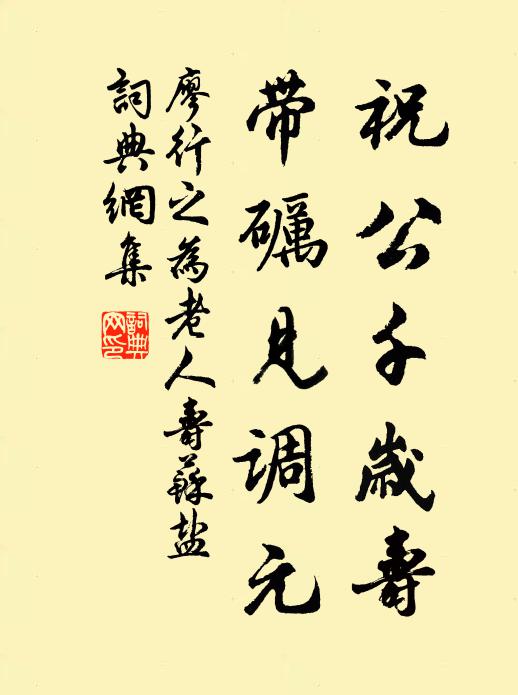 祝公千歲壽
带礪見调元
廖行之為老人壽蘇盐
詞典網集
詞典網印